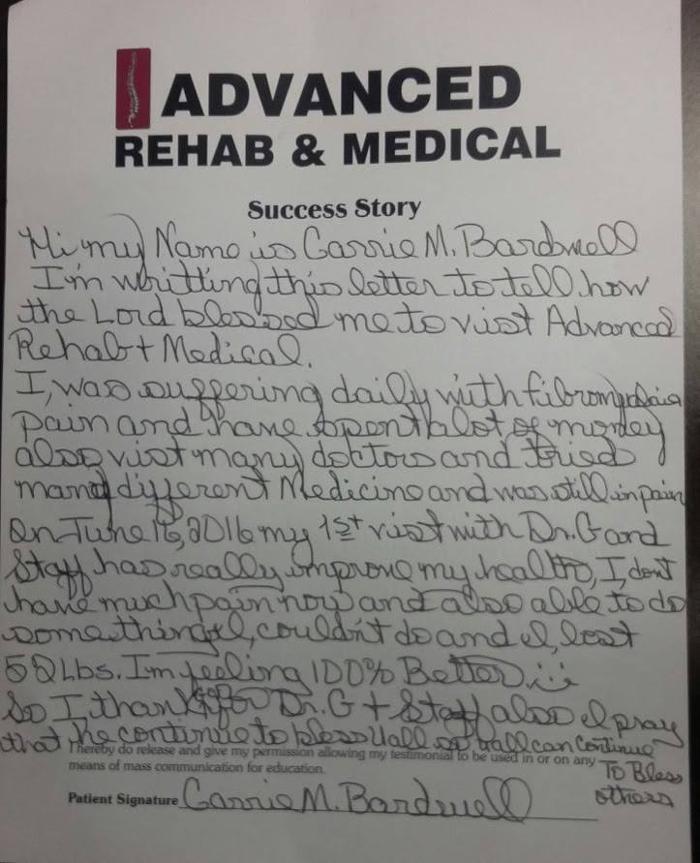 ADVANCED
REHAB & MEDICAL
Success Story
Hi my Name is Carrie M. Bardwell
I'm writting this letter to tell how
the Lord blessed me to vist Advanced
Rehab + Medical.
I, was suffering daily with fibromyalgia
pain and have spent alot of money
also vist many doctors and tried
many different Medicine and was still in pain
On June 16, 2016 my 1st vist with Dr. G and
Staff has really improve my health, I, don't
have much pain now and also able to do
something I, couldn't do and I, lost
52 Lbs. I'm feeling 100% Better
So I, thank Dr. G + Staff also I pray
that he continue to bless yall so yall can continue
To Bless
others
I hereby do release and give my permission allowing my testimonial to be used in or on any
means of mass communication for education.
Patient Signature Carrie M. Bardwell